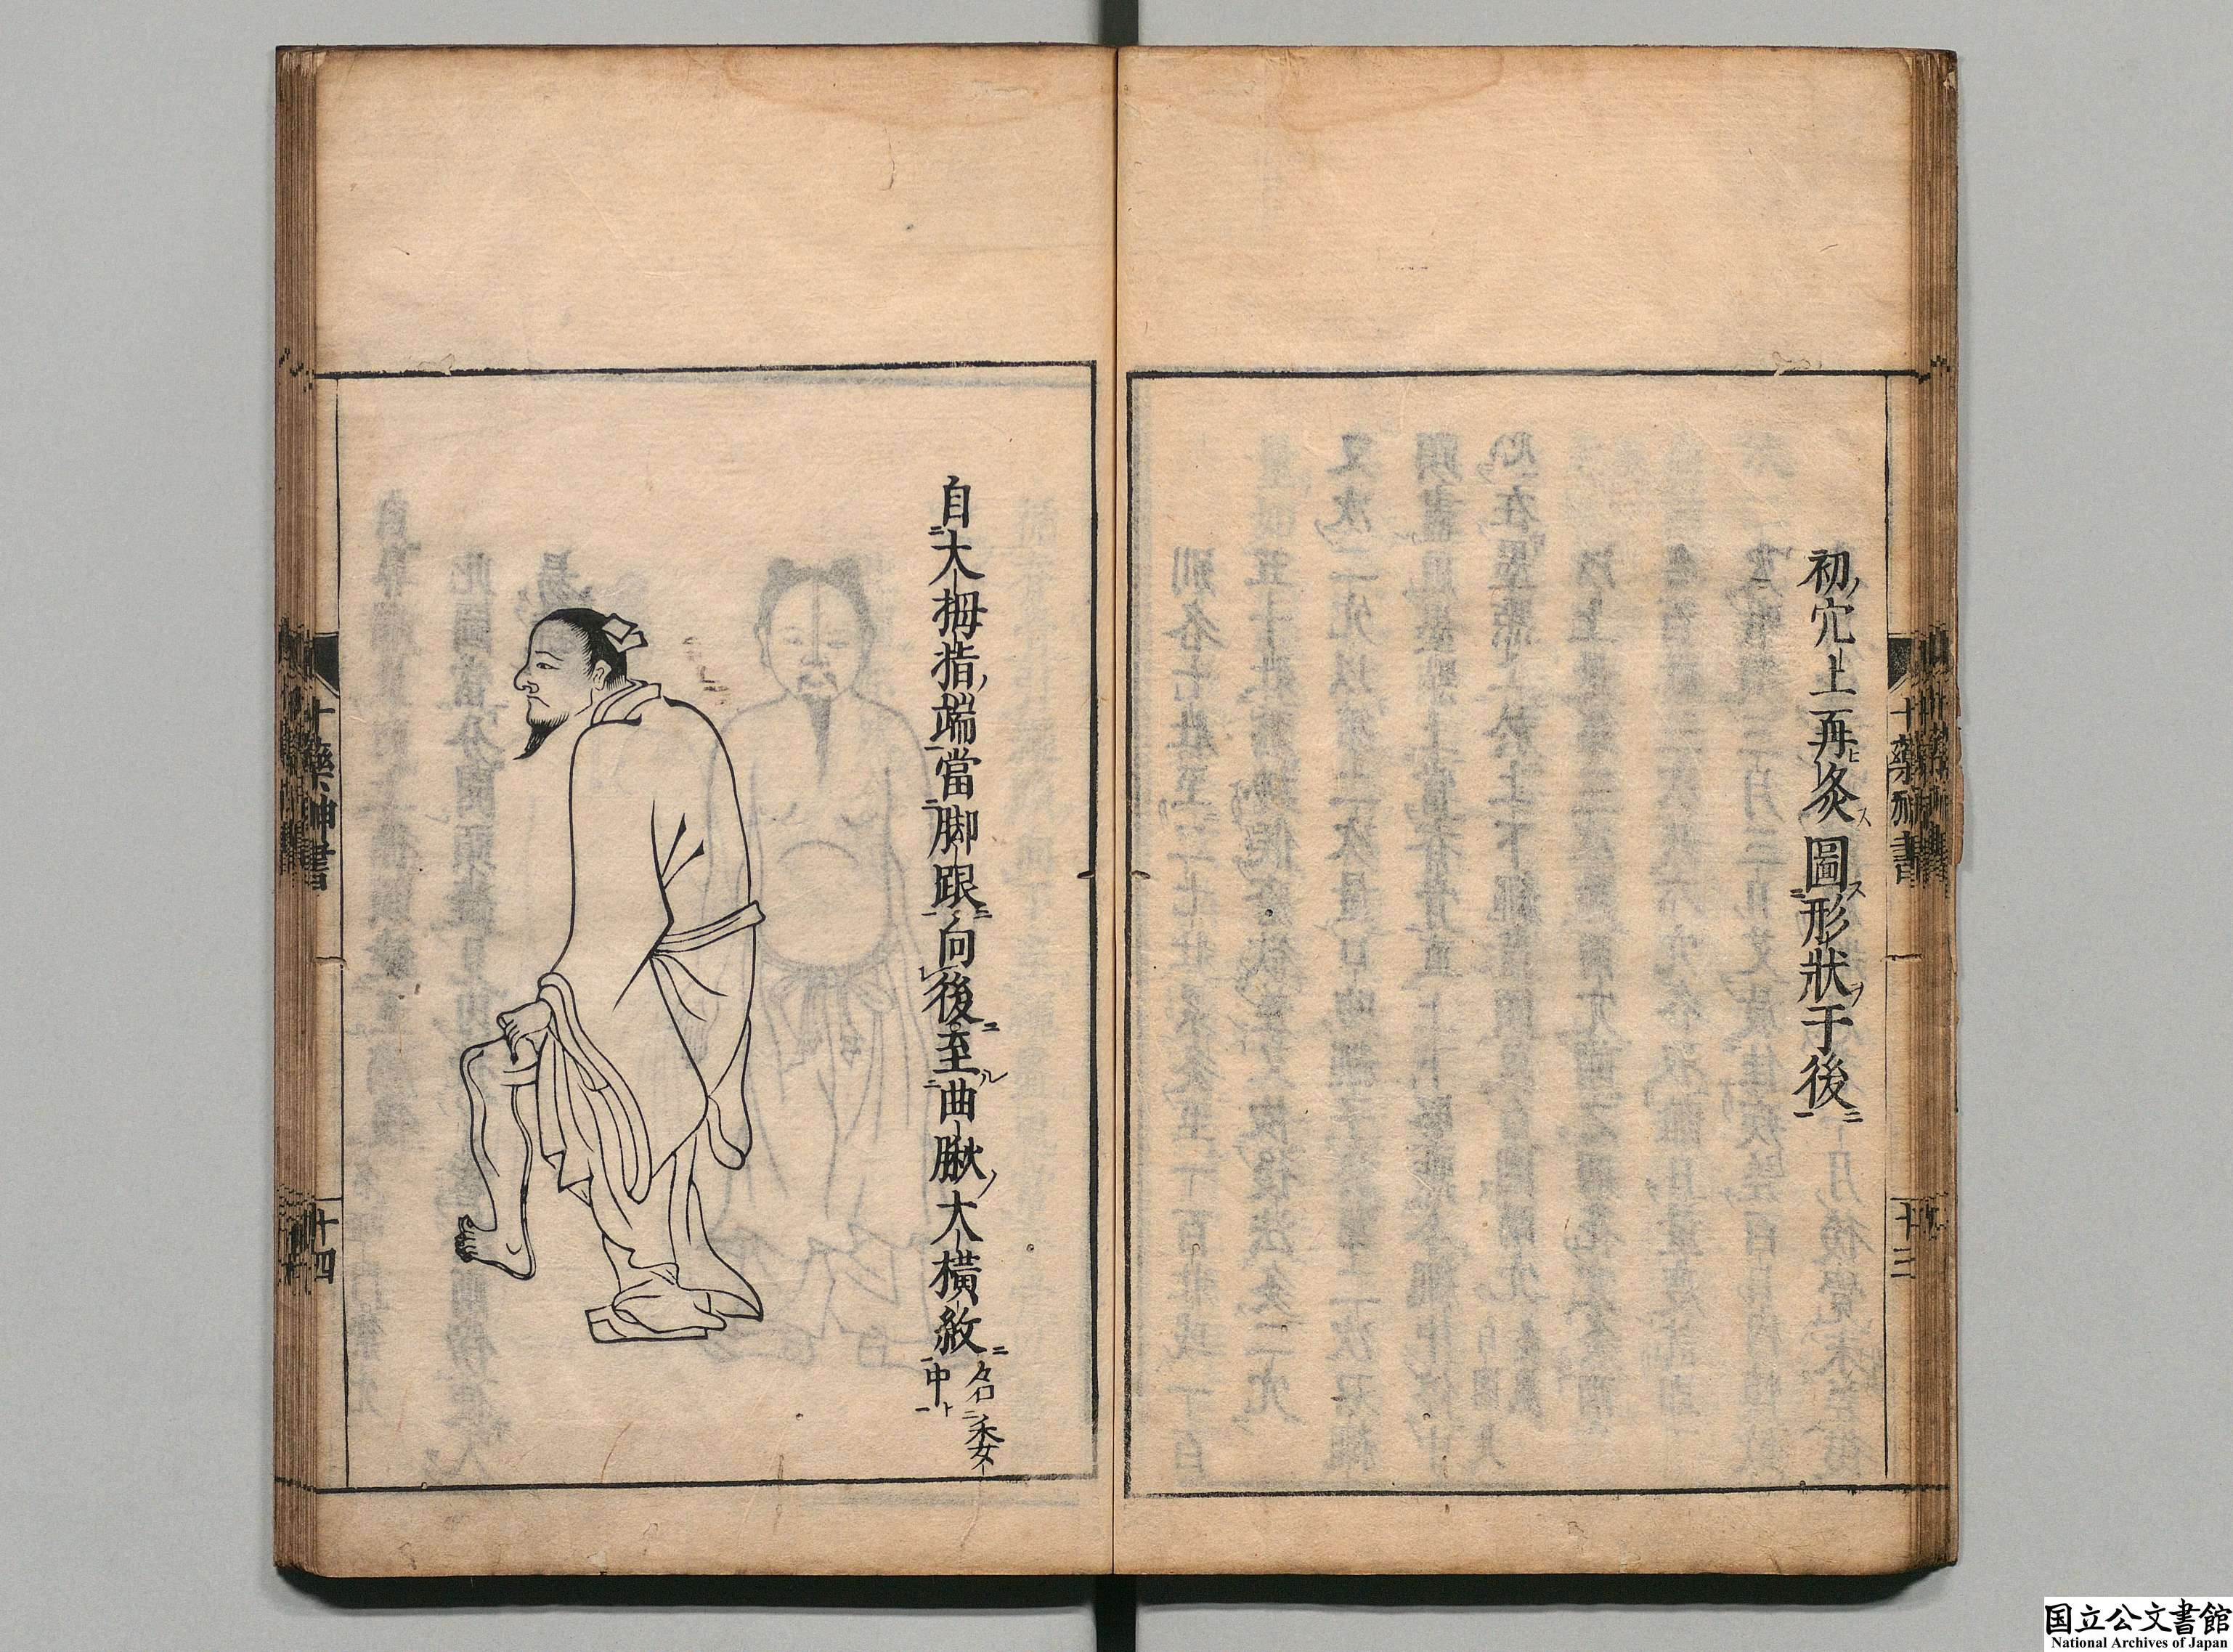 初穴上再灸圖形狀于後
十藥神書
十三
自大拇指端當脚跟向後至曲䐐大橫紋
名委
中
十藥神書
十四
国立公文書館
National Archives of Japan